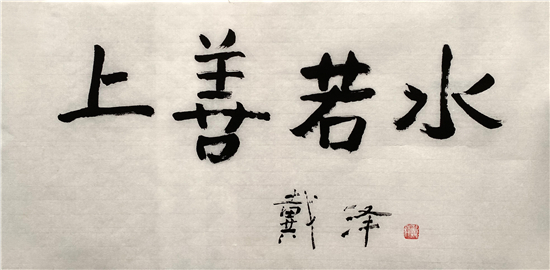 上善若水
戴泽